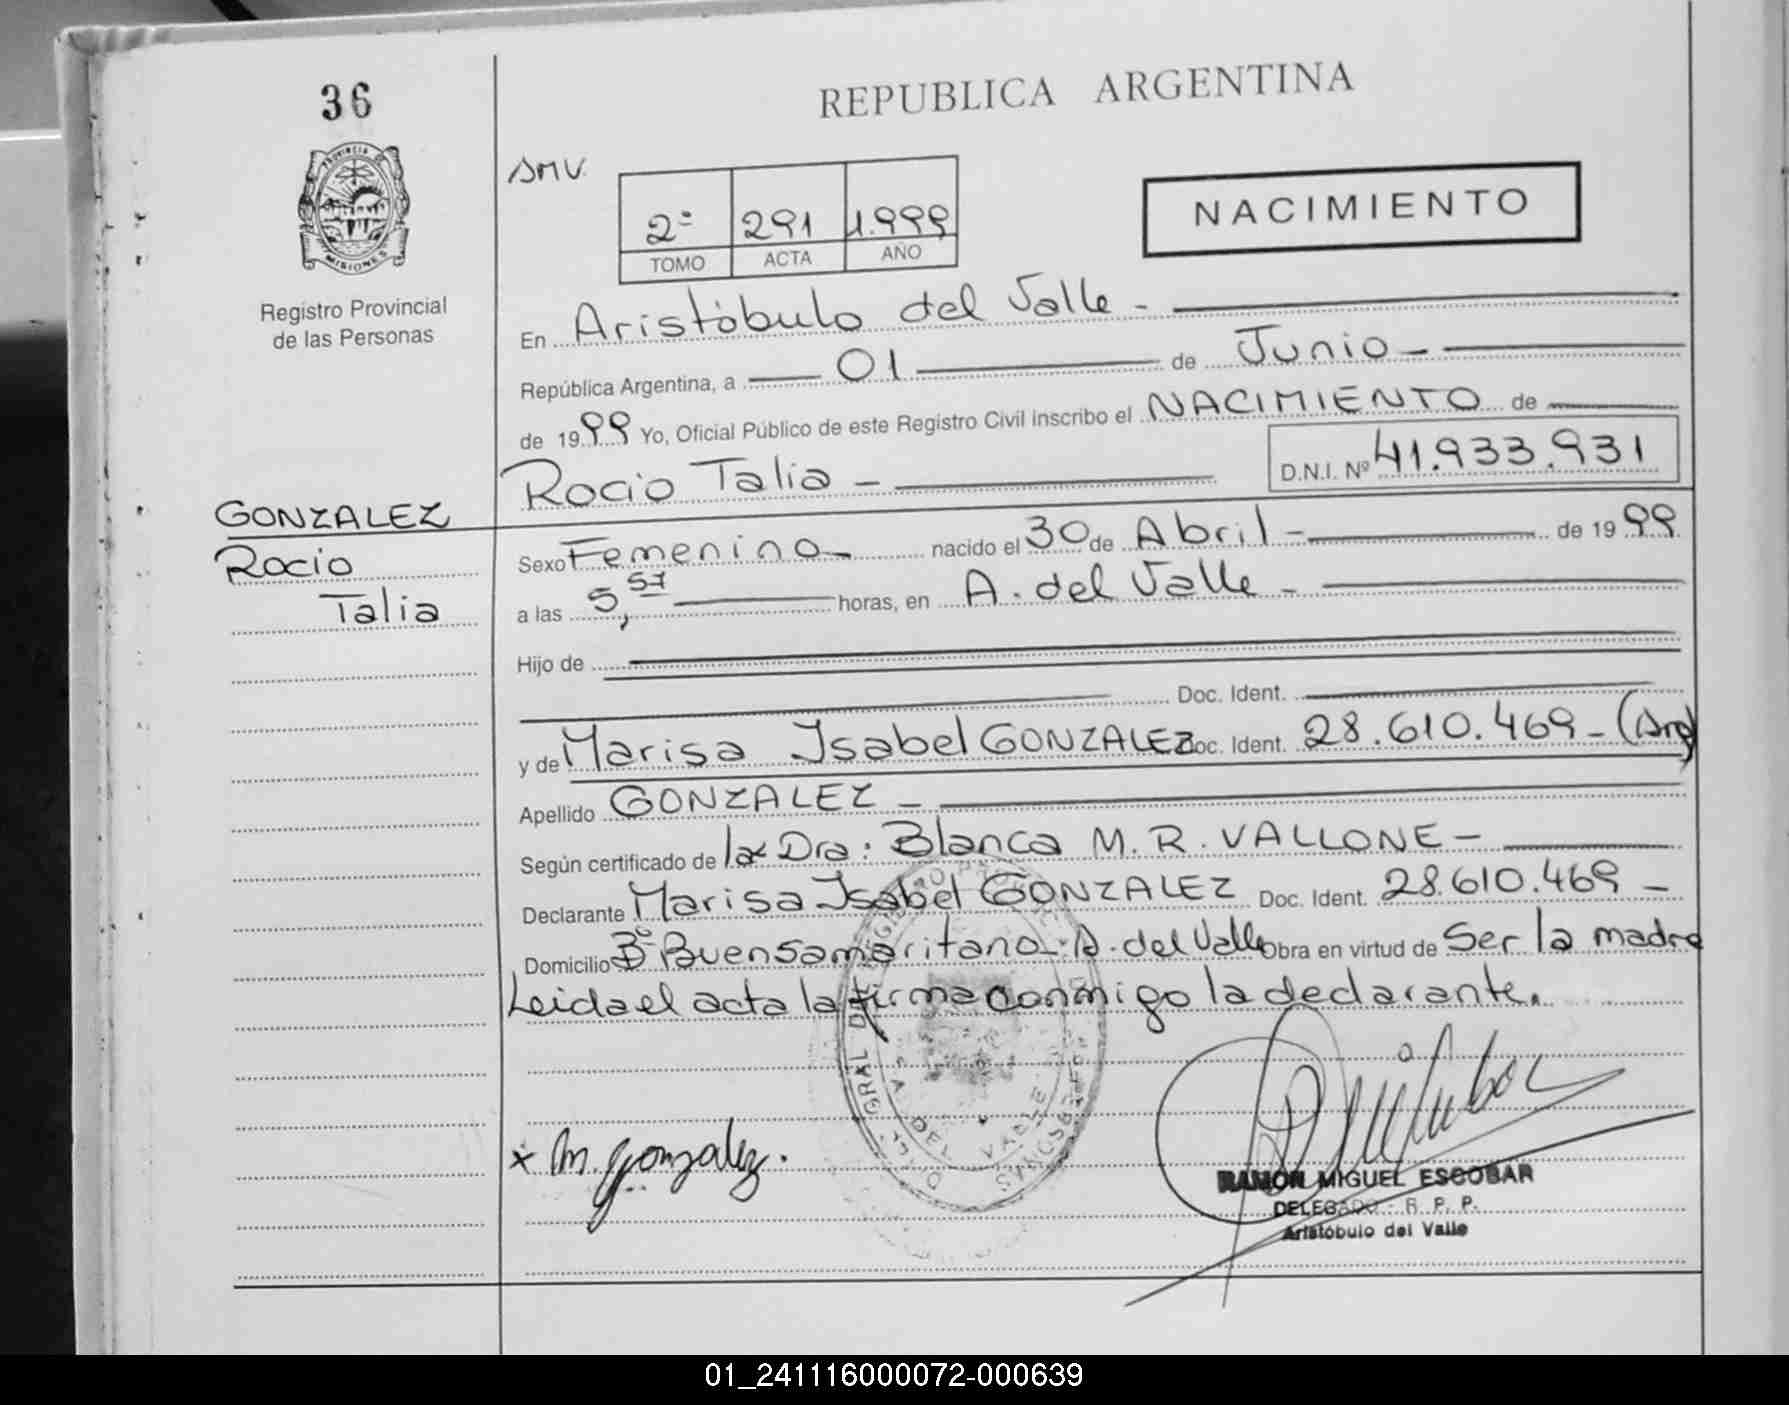 36
REPUBLICA ARGENTINA
PROVINCIA DE
MISIONES
Registro Provincial
de las Personas
SMV.
2º 291 1.999
TOMO ACTA AÑO
NACIMIENTO
En Aristóbulo del Valle -
República Argentina, a 01 de Junio -
de 1999 Yo, Oficial Público de este Registro Civil inscribo el NACIMIENTO de
Rocio Talia - D.N.I. Nº 41.933.931
GONZALEZ
Rocio
Talia
Sexo Femenino - nacido el 30 de Abril - de 1999
a las 5,57 horas, en A. del Valle -
Hijo de
Doc. Ident.
y de Marisa Isabel GONZALEZ Doc. Ident. 28.610.469 - (Arg)
Apellido GONZALEZ -
Según certificado de la Dra: Blanca M. R. VALLONE -
Declarante Marisa Isabel GONZALEZ Doc. Ident. 28.610.469 -
Domicilio Bº Buen Samaritano - A. del Valle Obra en virtud de Ser la madre
Leida el acta la firma conmigo la declarante.
x M. Gonzalez.
RAMON MIGUEL ESCOBAR
DELEGADO - R. P. P.
Aristóbulo del Valle
01_241116000072-000639